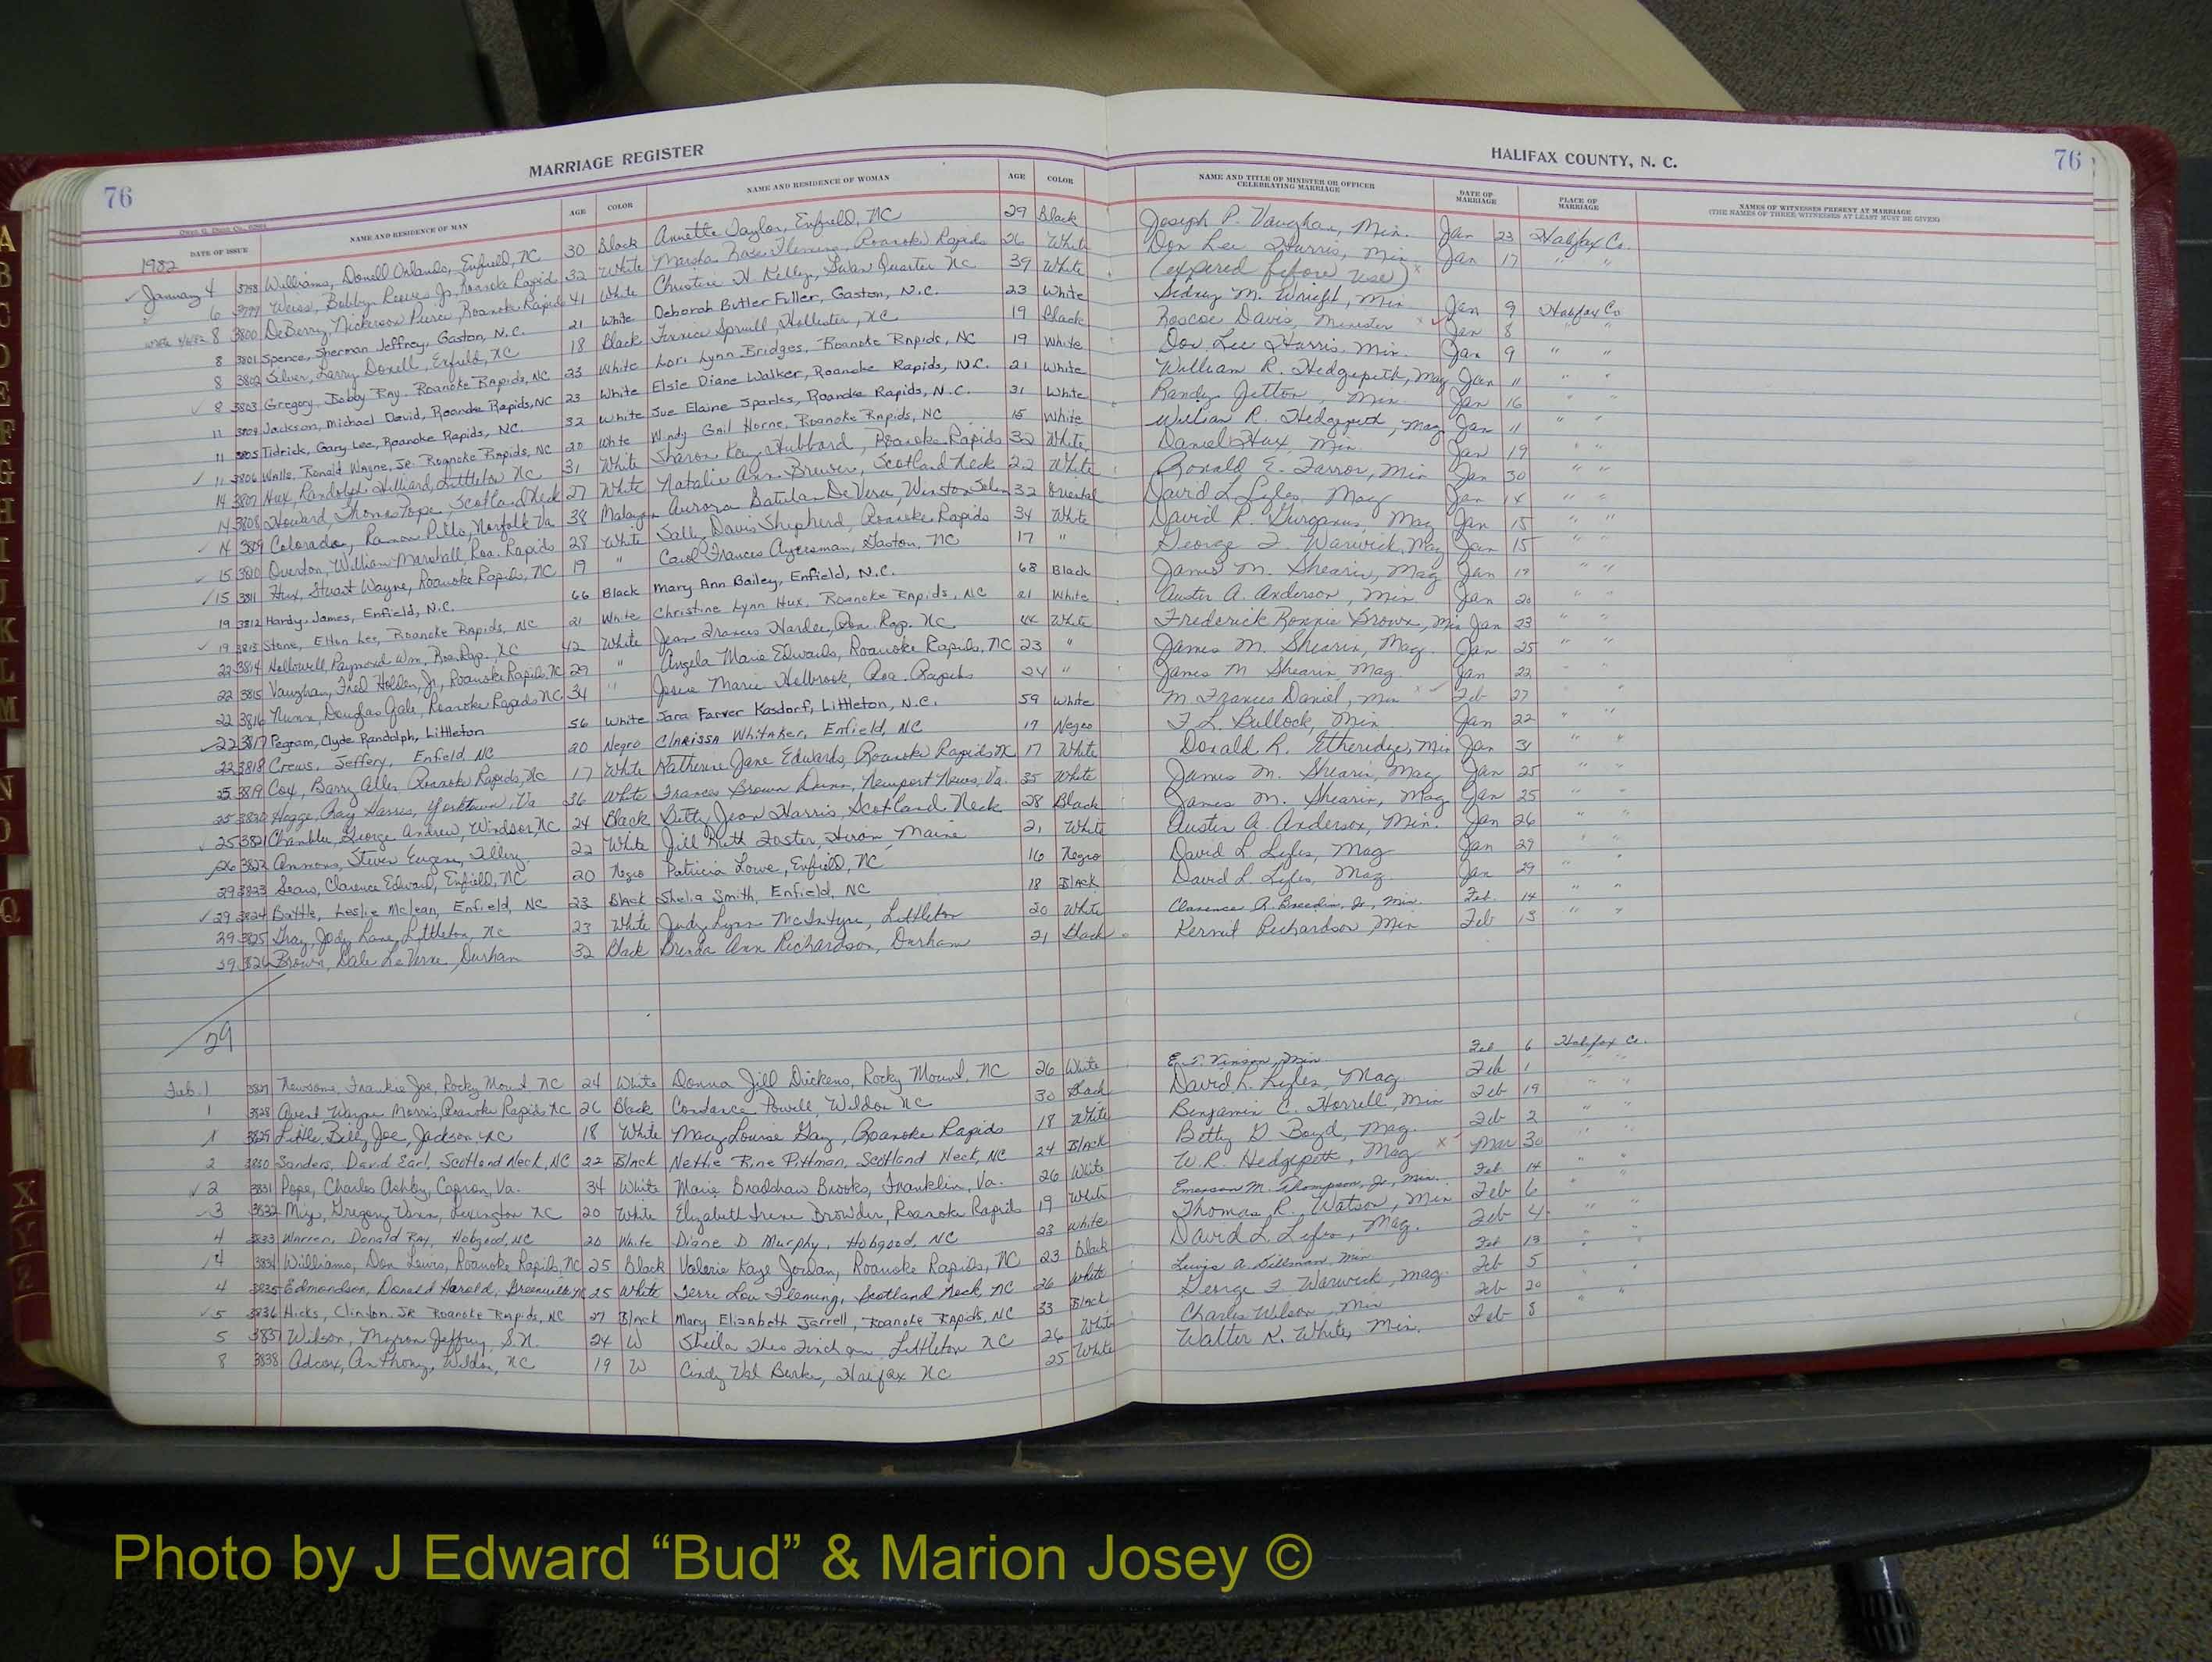 76
MARRIAGE REGISTER
HALIFAX COUNTY, N. C.
76
DATE OF ISSUE NAME AND RESIDENCE OF MAN AGE COLOR NAME AND RESIDENCE OF WOMAN AGE COLOR NAME AND TITLE OF MINISTER OR OFFICER CELEBRATING MARRIAGE DATE OF MARRIAGE PLACE OF MARRIAGE NAMES OF WITNESSES PRESENT AT MARRIAGE
(THE NAMES OF THREE WITNESSES AT LEAST MUST BE GIVEN)
1982
January 4 3798 Williams, Donell Orlando, Enfield, NC 30 Black Annette Taylor, Enfield, NC 29 Black Joseph P. Vaughan, Min. Jan 23 Halifax Co.
6 3799 Weiss, Bobby Reeves Jr, Roanoke Rapids 32 White Marsha Rose Fleming, Roanoke Rapids 26 White Don Lee Harris, Min. Jan 17 " "
8 3800 DeBerry, Nickerson Pierce, Roanoke Rapids 41 White Christine H Kelly, Swan Quarter NC 39 White (expired before use)
8 3801 Spence, Sherman Jeffrey, Gaston, N.C. 21 White Deborah Butler Fuller, Gaston, N.C. 23 White Sidney M. Wright, Min Jan 9 Halifax Co
8 3802 Silver, Larry Donell, Enfield, NC 18 Black Spruill, Hollister, NC 19 Black Roscoe Davis, Minister Jan 8 " "
8 3803 Gregory, Bobby Ray, Roanoke Rapids, NC 23 White Lori Lynn Bridges, Roanoke Rapids, NC 19 White Don Lee Harris, Min. Jan 9 " "
11 3804 Jackson, Michael David, Roanoke Rapids, NC 23 White Elsie Diane Walker, Roanoke Rapids, N.C. 21 White William R. Hedgepeth, Mag Jan 11 " "
11 3805 Tidrick, Gary Lee, Roanoke Rapids, NC. 32 White Sue Elaine Sparks, Roanoke Rapids, N.C. 31 White Randy Jetton, Min. Jan 16 " "
11 3806 Walls, Ronald Wayne, Jr. Roanoke Rapids, NC 20 White Windy Gail Horne, Roanoke Rapids, NC 15 White William R. Hedgepeth, Mag Jan 11 " "
14 3807 Hux, Randolph Hilliard, Littleton NC. 31 White Sharon Kay Hubbard, Roanoke Rapids 32 White Daniel Hux, Min. Jan 19 " "
14 3808 Howard, Thomas Pope, Scotland Neck 27 White Natalie Ann Brewer, Scotland Neck 22 White Ronald E. Farror, Min Jan 30 " "
14 3809 Colorado, Ramon Pillo, Norfolk Va 38 Malayan Aurora Batilan De Vera, Winston Salem 32 Oriental David L Lyles, Mag Jan 14 " "
15 3810 Overton, William Marshall, Roa. Rapids 28 White Sally Davis Shepherd, Roanoke Rapids 34 White David R. Gurganus, Mag Jan 15 " "
15 3811 Hux, Stuart Wayne, Roanoke Rapids, NC 19 " Carol Frances Ayersman, Gaston, NC 17 " George F. Warwick, Mag Jan 15 " "
19 3812 Hardy, James, Enfield, N.C. 66 Black Mary Ann Bailey, Enfield, N.C. 68 Black James M. Shearin, Mag Jan 19 " "
19 3813 Stone, Elton Lee, Roanoke Rapids, NC 21 White Christine Lynn Hux, Roanoke Rapids, NC 21 White Auster A. Anderson, Min. Jan 20 " "
22 3814 Hollowell, Raymond Wm, Roa. Rap., NC 42 White Jean Frances Harder, Roa. Rap. NC 44 White Frederick Ronnie Brown, Min Jan 23 " "
22 3815 Vaughan, Fred Holden, Jr, Roanoke Rapids, NC 29 " Angela Marie Edwards, Roanoke Rapids, NC 23 " James M. Shearin, Mag. Jan 25 " "
22 3816 Nunn, Douglas Gale, Roanoke Rapids NC 34 " Marie Helbrook, Roa. Rapids 24 " James M Shearin Mag. Jan 22 " "
22 3817 Pegram, Clyde Randolph, Littleton 56 White Jara Farver Kasdorf, Littleton, N.C. 59 White M Frances Daniel, Min Feb 27 " "
22 3818 Crews, Jeffery, Enfield NC 20 Negro Clarissa Whitaker, Enfield, NC 19 Negro F. L. Bullock, Min Jan 22 " "
25 3819 Cox, Barry Allen Roanoke Rapids, NC 17 White Katherine Jane Edwards, Roanoke Rapids NC 17 White Donald R. Etheridge, Min Jan 31 " "
25 3820 Hogge, Ray Harris, Yorktown, Va 36 White Frances Brown Dunn, Newport News, Va. 35 White James M. Shearin, Mag Jan 25 " "
25 3821 Chamblee, George Andrew, Windsor NC 24 Black Betty Jean Harris, Scotland Neck 28 Black James M. Shearin, Mag Jan 25 " "
26 3822 Ammons, Steven Eugene, Tillery 22 White Jill Ruth Foster, Hiram Maine 21 White Auster A. Anderson, Min. Jan 26 " "
29 3823 Sears, Clarence Edward, Enfield, NC 20 Negro Patricia Lowe, Enfield, NC 16 Negro David L. Lyles, Mag Jan 29 " "
29 3824 Battle, Leslie McLean, Enfield, NC 23 Black Shelia Smith, Enfield, NC 18 Black David L. Lyles, Mag. Jan 29
29 3825 Gray, Jody Lane, Littleton, NC 23 White Judy Lynn McIntyre, Littleton 20 White Clarence A. Breedin, Jr, Min. Feb. 14 " "
29 3826 Brown, Dale LeVerne, Durham 32 Black Brenda Ann Richardson, Durham 21 Black Kermit Richardson, Min Feb 13 " "
29
Feb. 1 3827 Newsome, Frankie Joe, Rocky Mount NC 24 White Donna Jill Dickens, Rocky Mount, NC 26 White E. T. Vinson, Min Feb 6 Halifax Co.
1 3828 Avent Wayne Morris, Roanoke Rapids NC 26 Black Constance Powell, Weldon NC 30 Black David L. Lyles, Mag. Feb 1 " "
1 3829 Little, Billy Joe, Jackson, NC 18 White Macy Louise Gay, Roanoke Rapids 18 White Benjamin C. Horrell, Min Feb 19 " "
2 3830 Sanders, David Earl, Scotland Neck, NC 22 Black Nettie Rine Pittman, Scotland Neck, NC 24 Black Betty D Boyd, Mag. Feb 2 " "
2 3831 Pope, Charles Ashby, Capron, Va. 34 White Marie Bradshaw Brooks, Franklin, Va. 26 White W. R. Hedgepeth, Mag Mar 30 " "
3 3832 Mize, Gregory Vann, Lexington NC 20 White Elizabeth Irene Browder, Roanoke Rapids 19 White Emerson M. Thompson, Jr, Min. Feb 14 " "
4 3833 Warren, Donald Ray, Hobgood, NC 20 White Diane D Murphy, Hobgood, NC 23 White Thomas R. Watson, Min Feb 6
4 3834 Williams, Don Lewis, Roanoke Rapids, NC 25 Black Valerie Kaye Jordan, Roanoke Rapids, NC 23 Black David L Lyles, Mag. Feb 4 " "
4 3835 Edmondson, Donald Harold, Greenville NC 25 White Terre Lou Fleming, Scotland Neck, NC 26 White Lewis A. Dillman, Min. Feb 13 " "
5 3836 Hicks, Clinton, Jr Roanoke Rapids, NC 27 Black Mary Elizabeth Jarrell, Roanoke Rapids, NC 33 Black George F. Warwick, Mag. Feb 5 "
5 3837 Wilson, Myron Jeffrey, S.N. 24 W Sheila Theo Finch, Littleton NC 26 White Charles Wilson, Min Feb 20 " "
8 3838 Adcox, Anthony, Weldon, NC 19 W Cindy Val Burke, Halifax NC 25 White Walter N. White, Min. Feb 8
Photo by J Edward “Bud” & Marion Josey ©